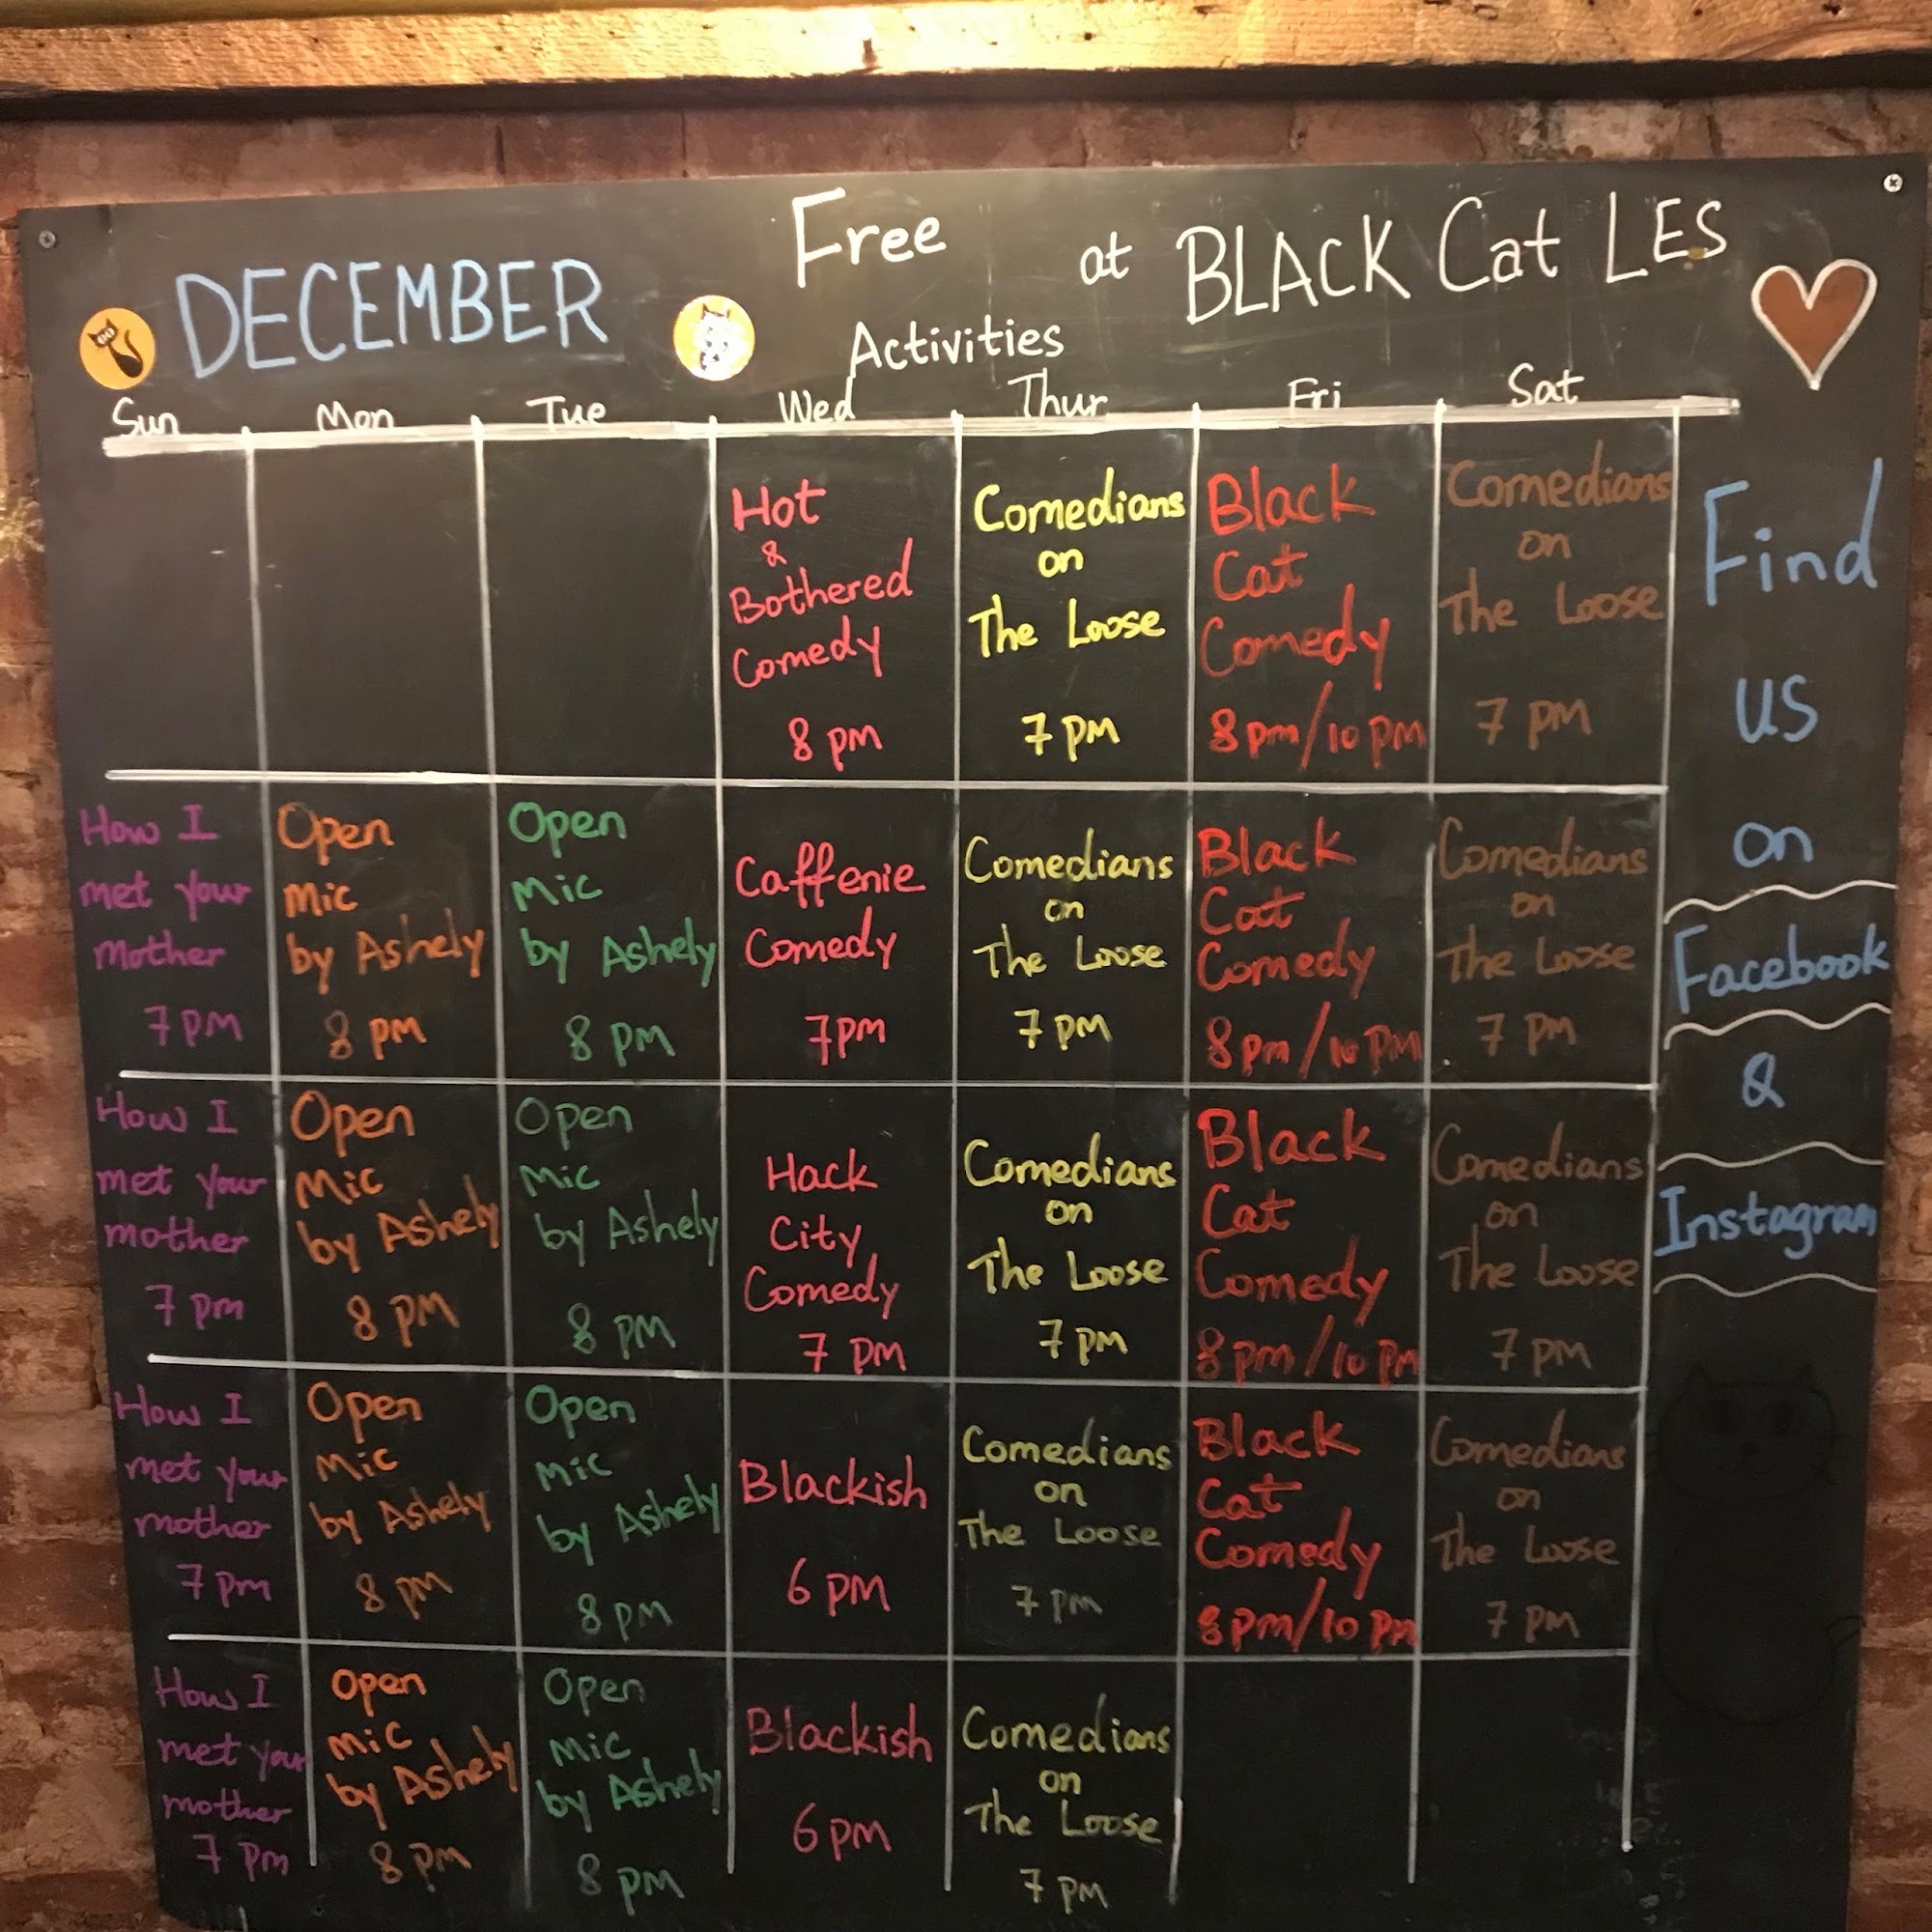 Free at BLACK Cat LES
DECEMBER
Activities
Sun Mon Tue Wed Thur Fri Sat
Hot
&
Bothered
Comedy
8 pm
Comedians
on
The Loose
7 pm
Black
Cat
Comedy
8 pm/10 pm
Comedians
on
The Loose
7 pm
How I
met your
mother
7 pm
Open
Mic
by Ashely
8 pm
Open
Mic
by Ashely
8 pm
Caffenie
Comedy
7pm
Comedians
on
The Loose
7 pm
Black
Cat
Comedy
8 pm/10 pm
Comedians
on
The Loose
7 pm
How I
met your
mother
7 pm
Open
Mic
by Ashely
8 pm
Open
Mic
by Ashely
8 pm
Hack
City
Comedy
7 pm
Comedians
on
The Loose
7 pm
Black
Cat
Comedy
8 pm/10 pm
Comedians
on
The Loose
7 pm
How I
met your
mother
7 pm
Open
Mic
by Ashely
8 pm
Open
Mic
by Ashely
8 pm
Blackish
6 pm
Comedians
on
The Loose
7 pm
Black
Cat
Comedy
8 pm/10 pm
Comedians
on
The Loose
7 pm
How I
met your
mother
7 pm
Open
mic
by Ashely
8 pm
Open
Mic
by Ashely
8 pm
Blackish
6 pm
Comedians
on
The Loose
7 pm
Find
us
on
Facebook
&
Instagram